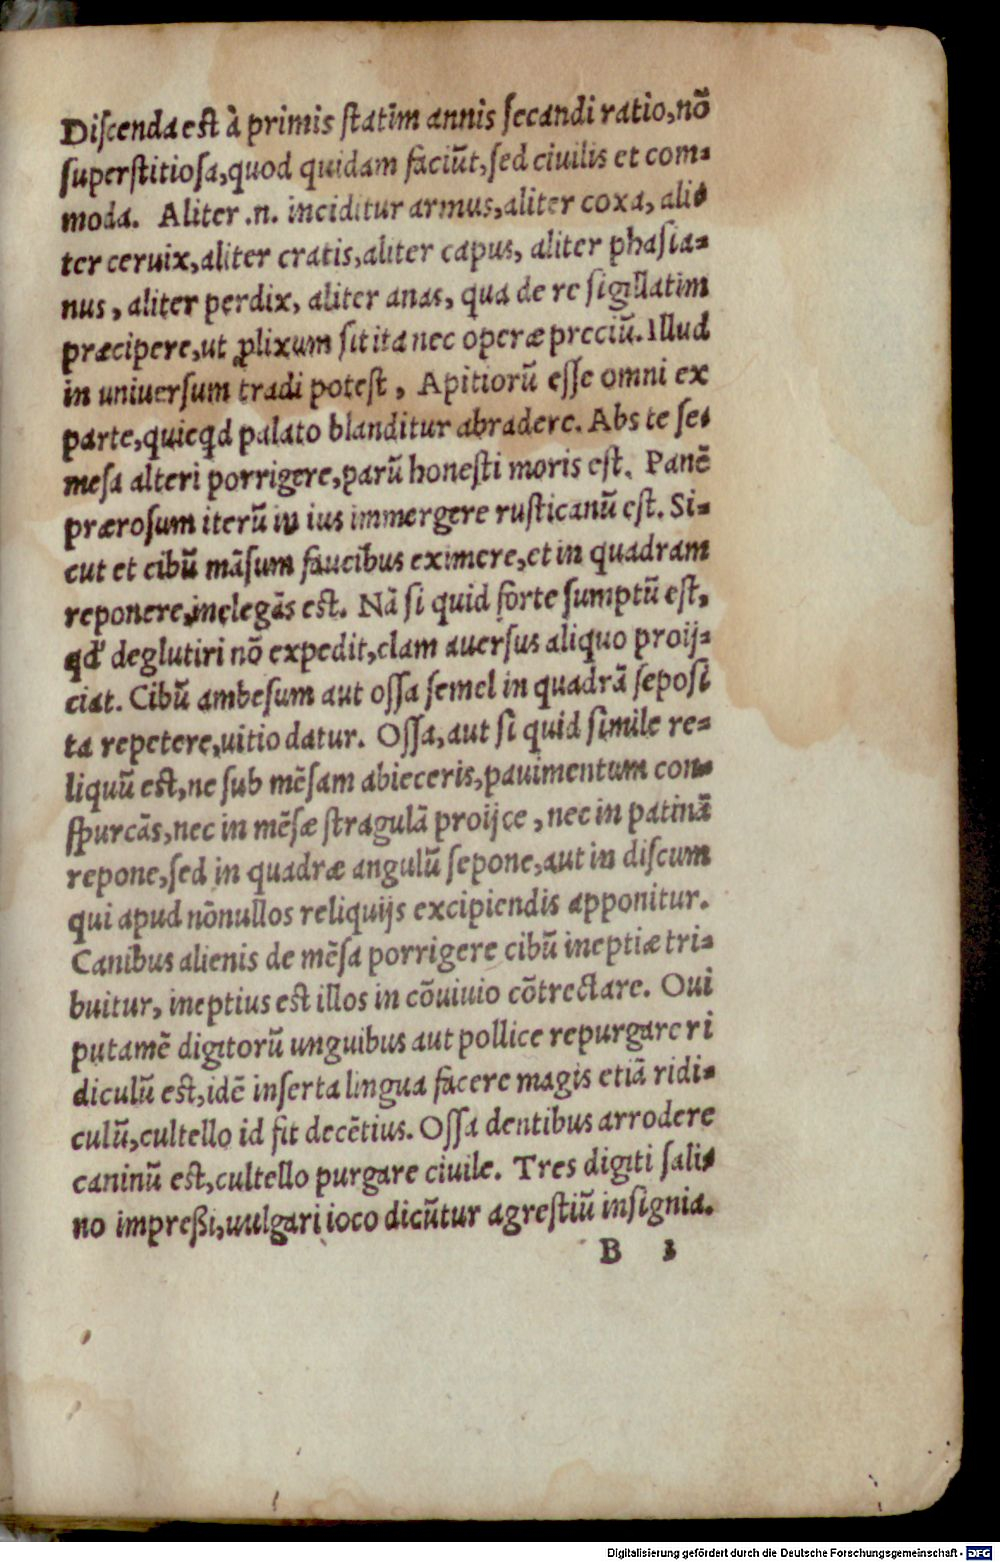 Discenda est à primis statim annis secandi ratio, nõ
superstitiosa, quod quidam faciũt, sed ciuilis et com-
moda. Aliter .n. inciditur armus, aliter coxa, ali-
ter ceruix, aliter cratis, aliter capus, aliter phasia-
nus, aliter perdix, aliter anas, qua de re sigillatim
præcipere, ut ꝓlixum sit ita nec operæ preciũ. Illud
in uniuersum tradi potest, Apitiorũ esse omni ex
parte, quicqd palato blanditur abradere. Abs te se-
mesa alteri porrigere, parũ honesti moris est. Panẽ
prærosum iterũ in ius immergere rusticanũ est. Si-
cut et cibũ mãsum faucibus eximere, et in quadram
reponere, inelegãs est. Nã si quid forte sumptũ est,
qd' deglutiri nõ expedit, clam auersus aliquo proij-
ciat. Cibũ ambesum aut ossa semel in quadrã seposi
ta repetere, uitio datur. Ossa, aut si quid simile re-
liquũ est, ne sub mẽsam abieceris, pauimentum con-
spurcãs, nec in mẽsæ stragulã proijce, nec in patinã
repone, sed in quadræ angulũ sepone, aut in discum
qui apud nõnullos reliquijs excipiendis apponitur.
Canibus alienis de mẽsa porrigere cibũ ineptiæ tri-
buitur, ineptius est illos in cõuiuio cõtrectare. Oui
putamẽ digitorũ unguibus aut pollice repurgare ri
diculũ est, idẽ inserta lingua facere magis etiã ridi-
culũ, cultello id fit decẽtius. Ossa dentibus arrodere
caninũ est, cultello purgare ciuile. Tres digiti sali-
no impreßi, uulgari ioco dicũtur agrestiũ insignia.
B 3
Digitalisierung gefördert durch die Deutsche Forschungsgemeinschaft - DFG